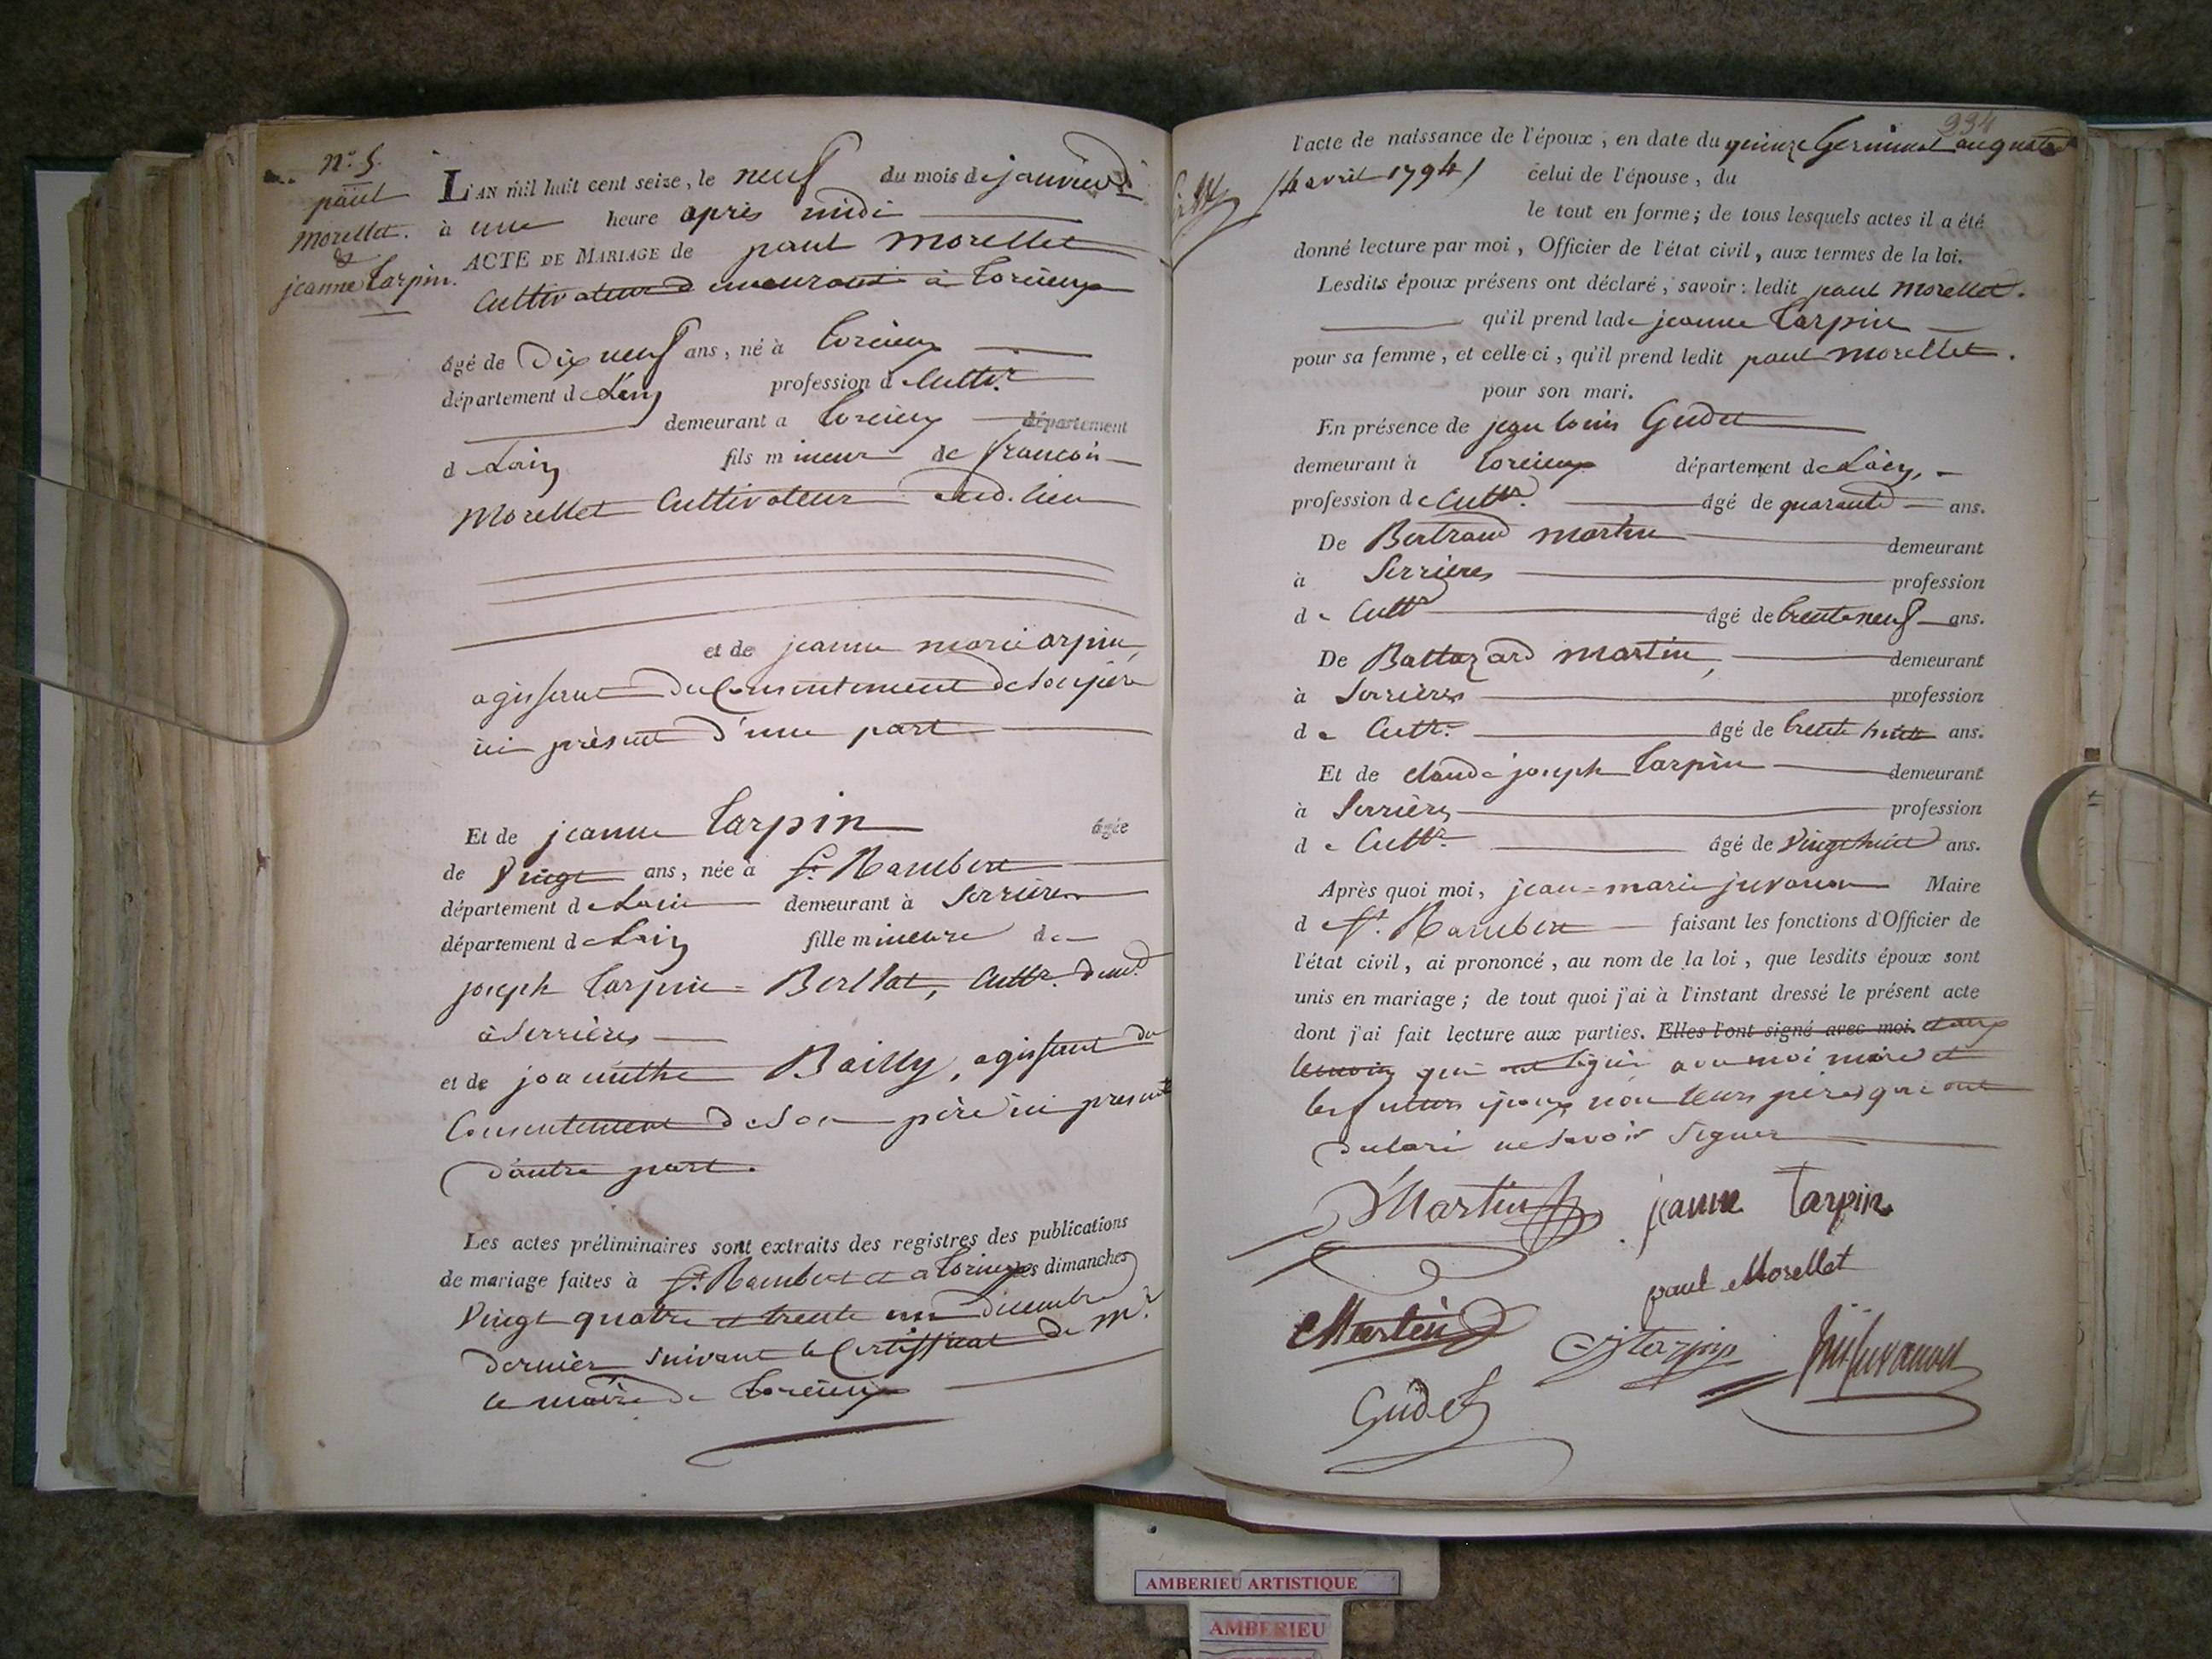 n.° 5.
paul
Morellet.
&
jeanne Tarpin.
L'AN mil huit cent seize, le neuf du mois de janvier
à une heure après midi
ACTE DE MARIAGE de paul Morellet
Cultivateur demeurant à Torcieux
âgé de Dix neuf ans, né à Torcieux
département de L'ain profession de Cultr.
demeurant a Torcieux département
de Lain fils mineur de francois
Morellet Cultivateur aud. lieu
et de jeanne marie arpin,
agissant du Consentement de Son père
ici présent d'une part
Et de jeanne Tarpin âgée
de Vingt ans, née à St. Rambert
département de Lain demeurant à Serrières
département de Lain fille mineure de
joseph Tarpin = Berllat, Cultr. demt.
à Serrières
et de joacinthe Bailly, agissant du
Consentement de Son père ici présent
d'autre part.
Les actes préliminaires sont extraits des registres des publications
de mariage faites à St. Rambert et a Torcieux les dimanches
Vingt quatre et trente un decembre
dernier suivant le Certifficat de Mr.
le maire de Torcieux
334
l'acte de naissance de l'époux, en date du quinze Germinal an quatre
(4 avril 1794) celui de l'épouse, du
le tout en forme; de tous lesquels actes il a été
donné lecture par moi, Officier de l'état civil, aux termes de la loi.
Lesdits époux présens ont déclaré, savoir: ledit paul Morellet.
qu'il prend lade jeanne Tarpin
pour sa femme, et celle ci, qu'il prend ledit paul Morellet.
pour son mari.
En présence de jean louis Gudet
demeurant à Torcieux département de Lain,
profession de Cultr. âgé de quarante ans.
De Bertrand Martin demeurant
à Serrières profession
de Cultr âgé de trente neuf ans.
De Baltazard Martin, demeurant
à Serrières profession
de Cultr. âgé de trente huit ans.
Et de claude joseph Tarpin demeurant
à Serrières profession
de Cultr. âgé de Vingt huit ans.
Après quoi moi, jean-marie juvanon Maire
de St. Rambert faisant les fonctions d'Officier de
l'état civil, ai prononcé, au nom de la loi, que lesdits époux sont
unis en mariage; de tout quoi j'ai à l'instant dressé le présent acte
dont j'ai fait lecture aux parties. Elles l'ont signé avec moi. et aux
temoins qui ont signé avec moi maire et
les futurs époux non leurs pères qui ont
declaré ne Savoir Signer
Martin jeanne Tarpin
paul Morellet
Martin CjTarpin jm juvanon
Gudet
AMBERIEU ARTISTIQUE
AMBERIEU